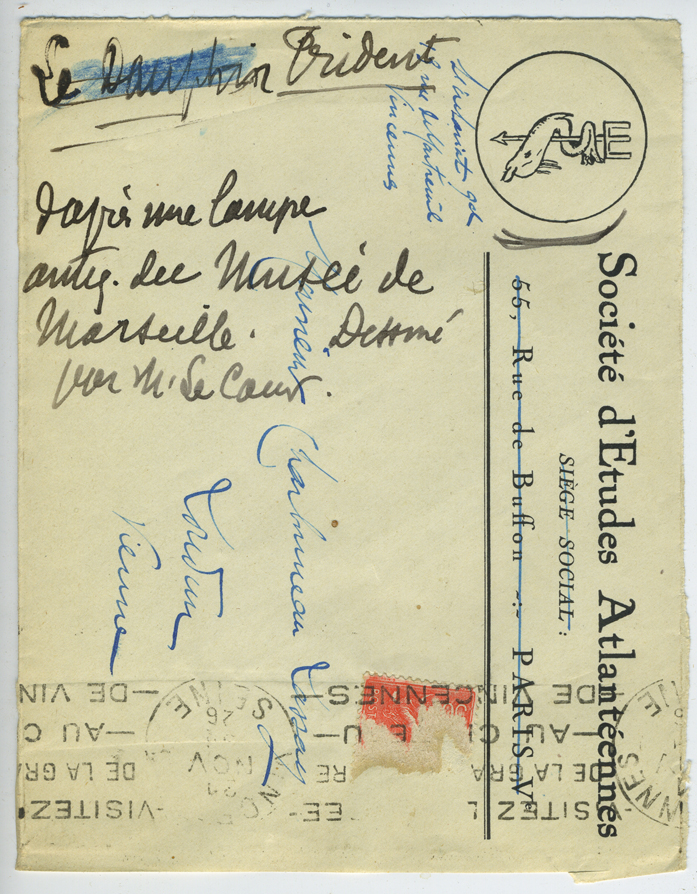 Le Dauphin Trident
d'après une lampe
antiq. du Musée de
Marseille. Dessiné
par M. Le Cour.
rue de Montreuil
Vincennes
Société d'Etudes Atlantéennes
SIÈGE SOCIAL :
55, Rue de Buffon -:- PARIS-Ve
Monsieur Charbonneau Lassay
Loudun
Vienne
VISITEZ
DE LA GRA
AU C
DE VIN
DE VINCENNES
SEINE
NOV
26